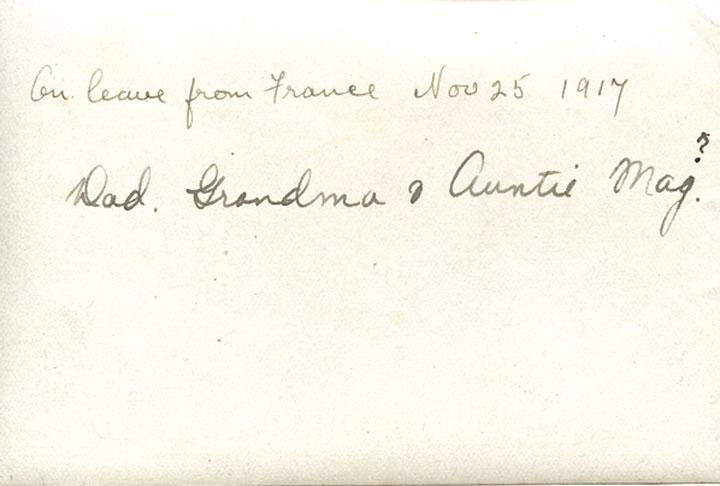 On leave from France Nov 25 1917
Dad. Grandma & Auntie Mag.?